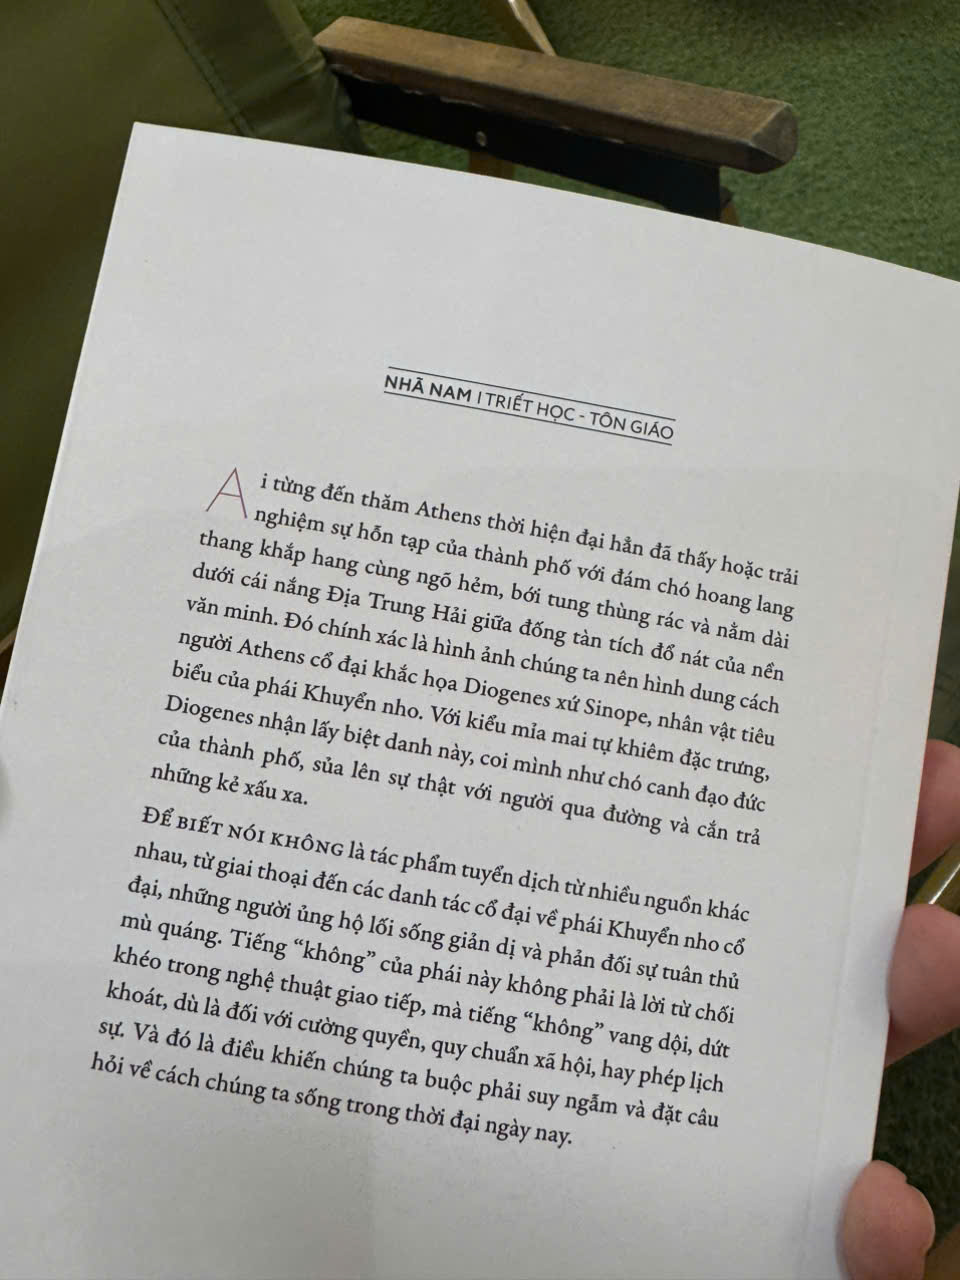 NHÃ NAM | TRIẾT HỌC - TÔN GIÁO
Ai từng đến thăm Athens thời hiện đại hẳn đã thấy hoặc trải
nghiệm sự hỗn tạp của thành phố với đám chó hoang lang
thang khắp hang cùng ngõ hẻm, bới tung thùng rác và nằm dài
dưới cái nắng Địa Trung Hải giữa đống tàn tích đổ nát của nền
văn minh. Đó chính xác là hình ảnh chúng ta nên hình dung cách
người Athens cổ đại khắc họa Diogenes xứ Sinope, nhân vật tiêu
biểu của phái Khuyển nho. Với kiểu mỉa mai tự khiêm đặc trưng,
Diogenes nhận lấy biệt danh này, coi mình như chó canh đạo đức
của thành phố, sủa lên sự thật với người qua đường và cắn trả
những kẻ xấu xa.
ĐỂ BIẾT NÓI KHÔNG là tác phẩm tuyển dịch từ nhiều nguồn khác
nhau, từ giai thoại đến các danh tác cổ đại về phái Khuyển nho cổ
đại, những người ủng hộ lối sống giản dị và phản đối sự tuân thủ
mù quáng. Tiếng “không” của phái này không phải là lời từ chối
khéo trong nghệ thuật giao tiếp, mà tiếng “không” vang dội, dứt
khoát, dù là đối với cường quyền, quy chuẩn xã hội, hay phép lịch
sự. Và đó là điều khiến chúng ta buộc phải suy ngẫm và đặt câu
hỏi về cách chúng ta sống trong thời đại ngày nay.